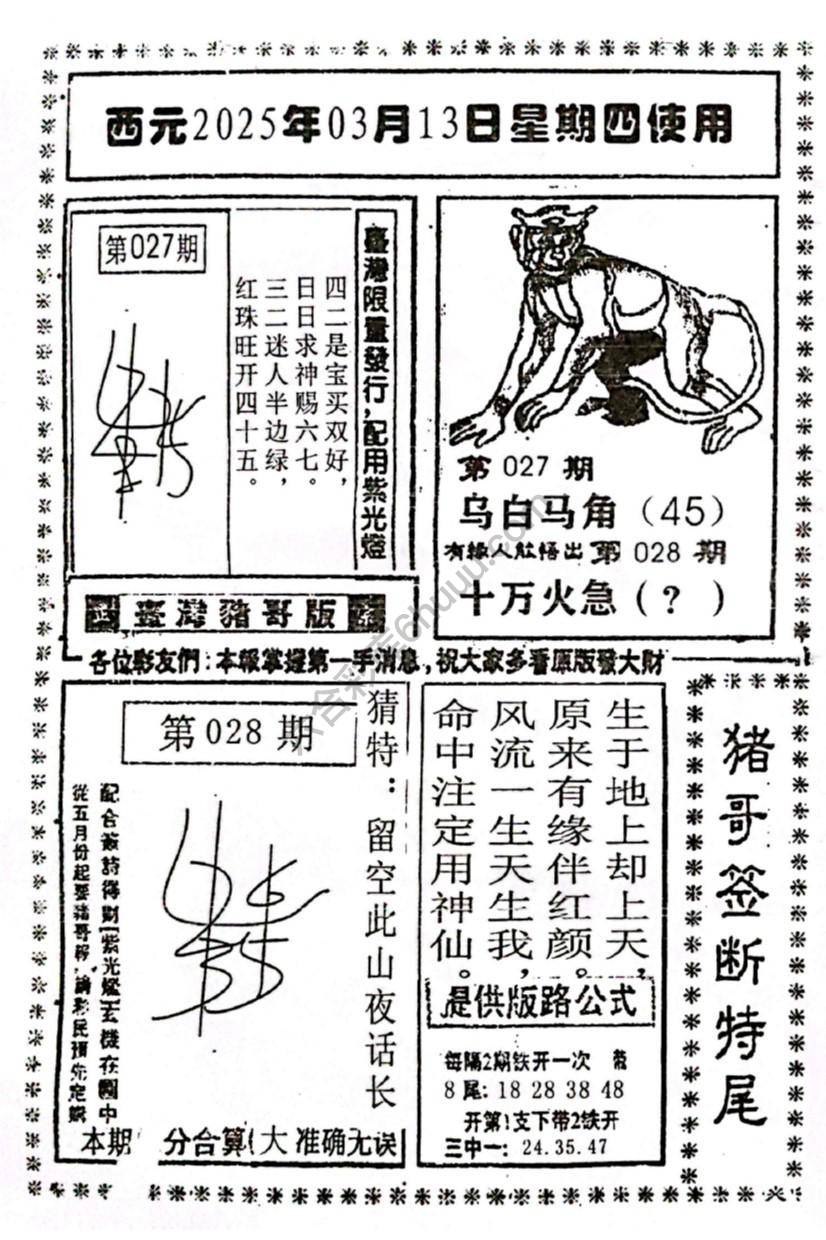 西元2025年03月13日星期四使用
第027期
臺灣限量發行，配用紫光燈
四二是宝买双好，
日日求神赐六七。
三二迷人半边绿，
红珠旺开四十五。
臺灣豬哥版
第 027 期
乌白马角（45）
有緣人能悟出 第 028 期
十万火急（？）
各位彩友們：本報掌握第一手消息，祝大家多看原版發大財
第 028 期
猜特：留空此山夜话长
配合簽詩得财【紫光燈】玄機在圖中
從五月份起要豬哥報，請彩民預先定購
本期 分合算大 准确无误
生于地上却上天，
原来有缘伴红颜。
风流一生天生我，
命中注定用神仙。
提供版路公式
每隔2期铁开一次
8尾：18 28 38 48
开第1支下带2铁开
三中一：24.35.47
猪哥签断特尾
六合彩库6huuu.com